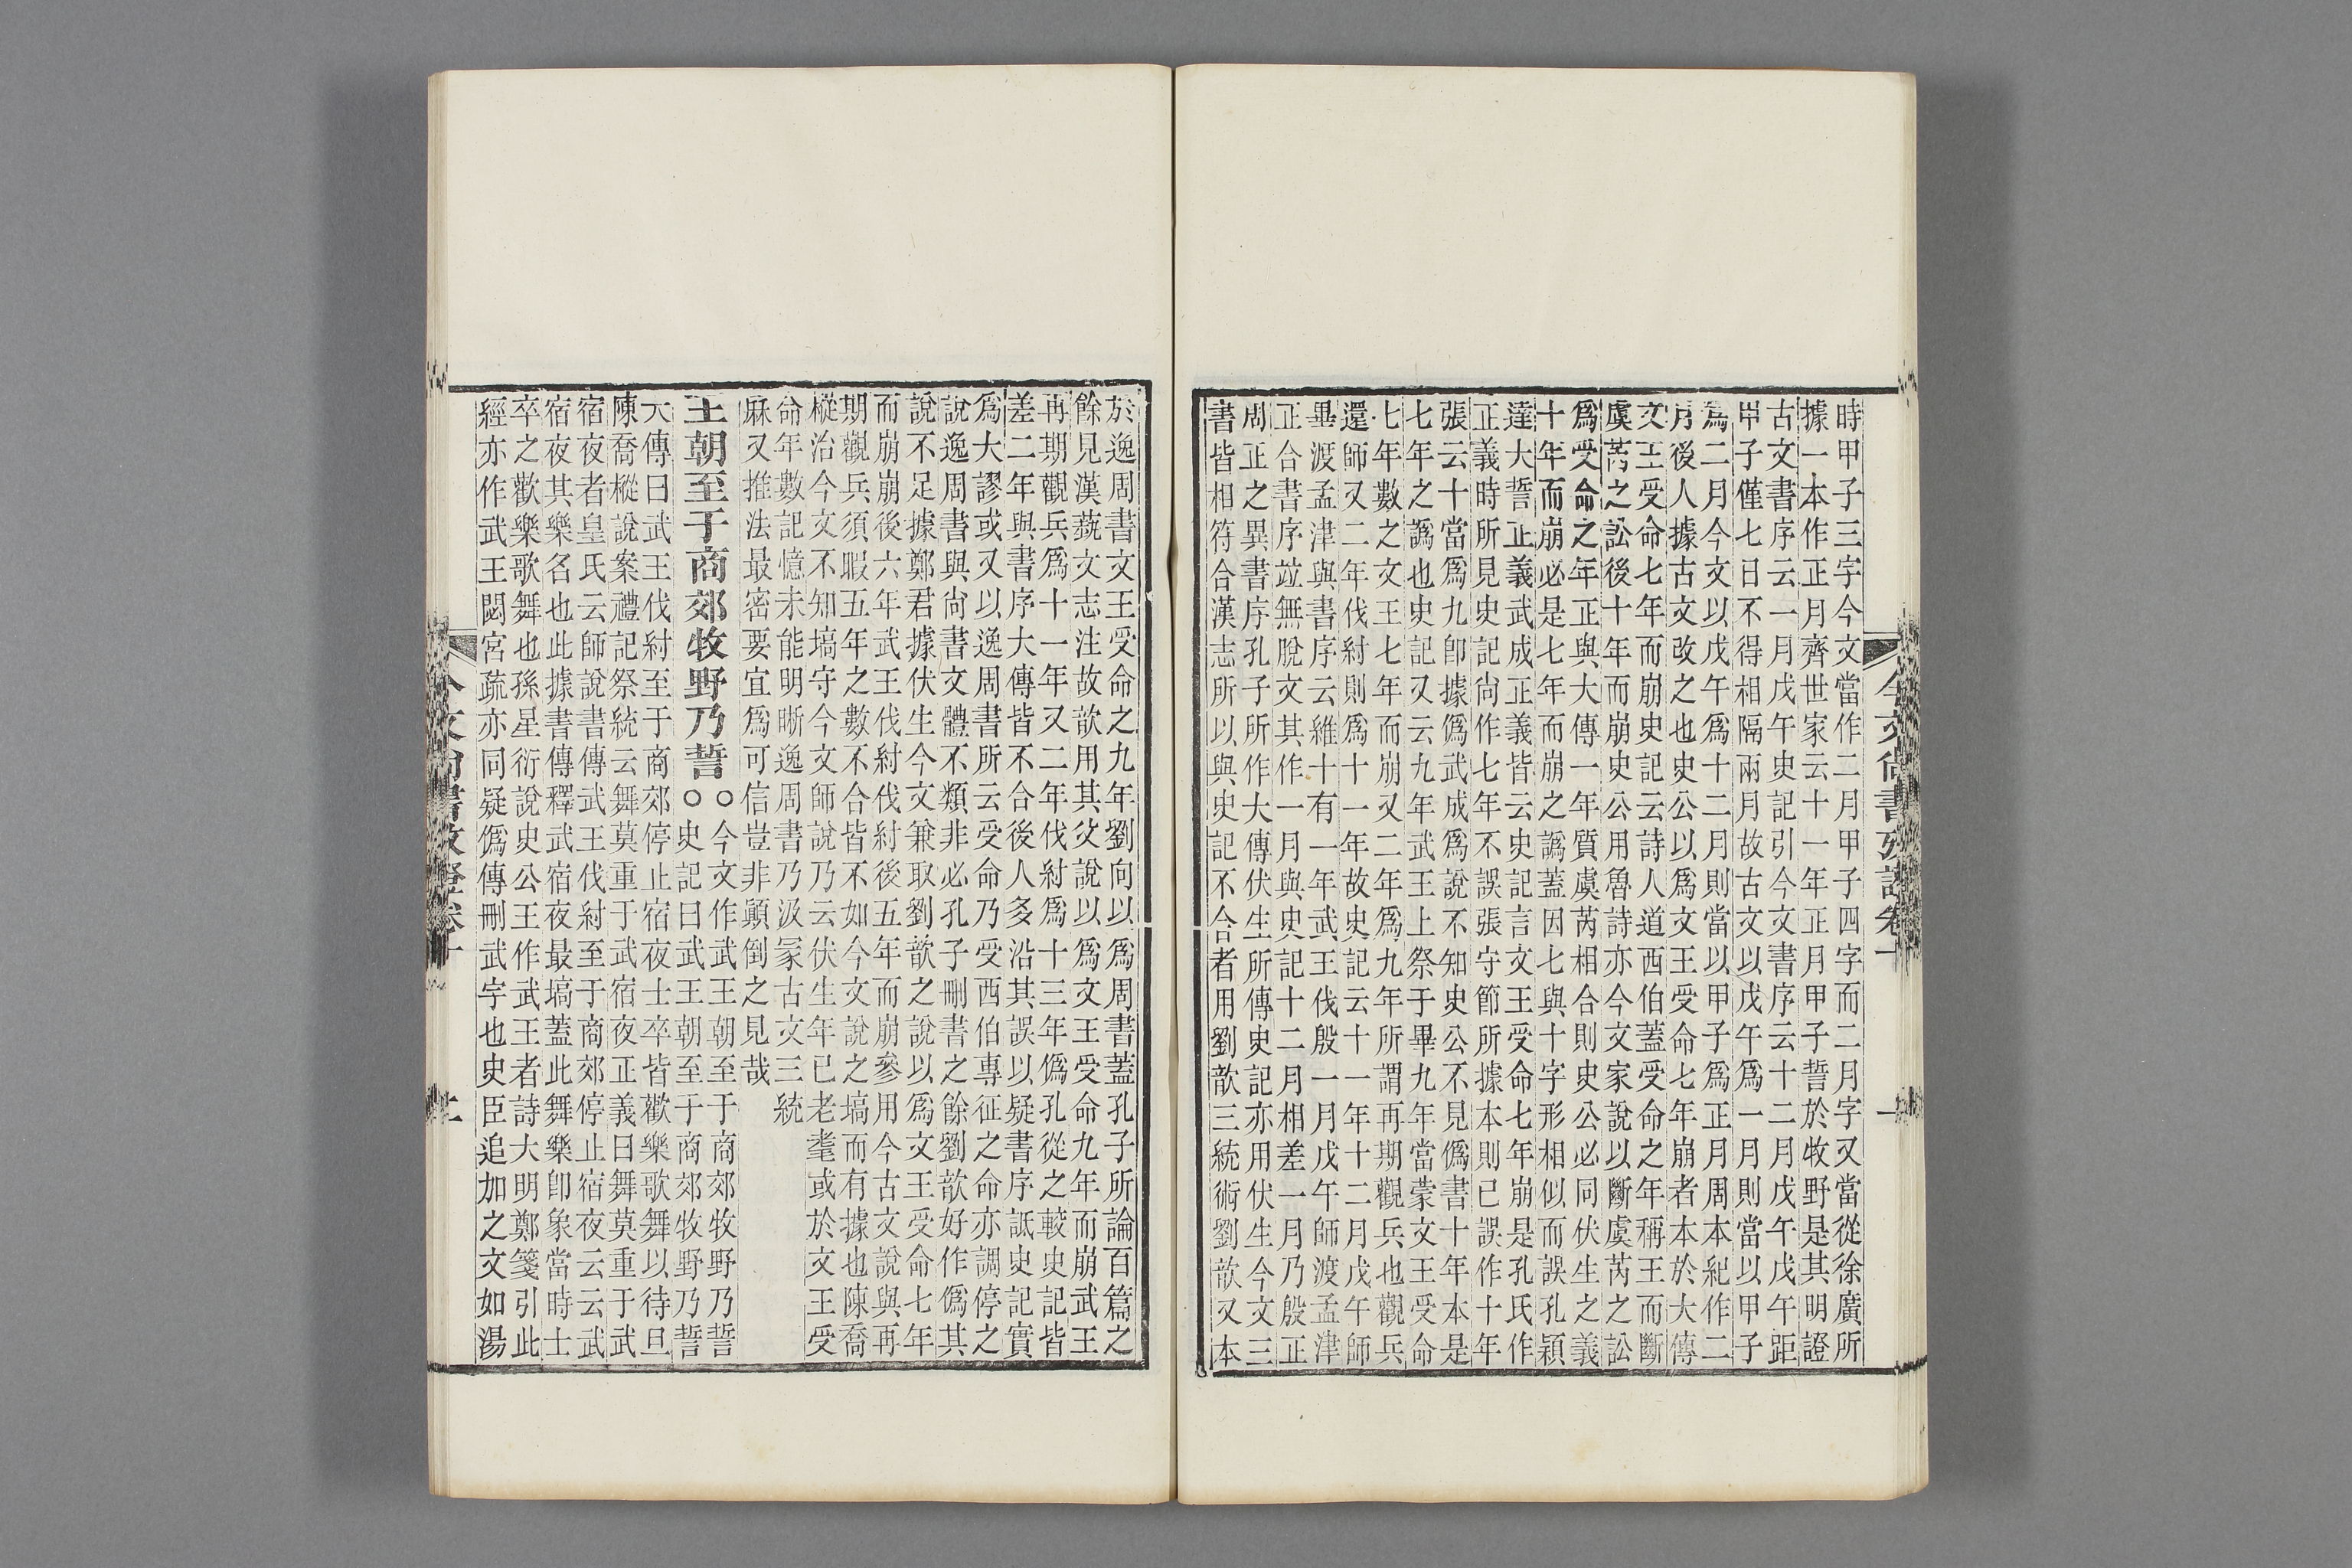 今文尚書攷證卷十
一
時甲子三字今文當作二月甲子四字而二月字又當從徐廣所
據一本作正月齊世家云十一年正月甲子誓於牧野是其明證
古文書序云一月戊午史記引今文書序云十二月戊午戊午距
甲子僅七日不得相隔兩月故古文以戊午爲一月則當以甲子
爲二月今文以戊午爲十二月則當以甲子爲正月周本紀作二
月後人據古文改之也史公以爲文王受命七年崩者本於大傳
文王受命七年而崩史記云詩人道西伯蓋受命之年稱王而斷
虞芮之訟後十年而崩史公用魯詩亦今文家說以斷虞芮之訟
爲受命之年正與大傳一年質虞芮相合則史公必同伏生之義
十年而崩必是七年而崩之譌蓋因七與十字形相似而誤孔穎
達大誓正義武成正義皆云史記言文王受命七年崩是孔氏作
正義時所見史記尚作七年不誤張守節所據本則已誤作十年
張云十當爲九卽據僞武成爲說不知史公不見僞書十年本是
七年之譌也史記又云九年武王上祭于畢九年當蒙文王受命
七年數之文王七年而崩又二年爲九年所謂再期觀兵也觀兵
還師又二年伐紂則爲十一年故史記云十一年十二月戊午師
畢渡孟津與書序云維十有一年武王伐殷一月戊午師渡孟津
正合書序竝無脫文其作一月與史記十二月相差一月乃殷正
周正之異書序孔子所作大傳伏生所傳史記亦用伏生今文三
書皆相符合漢志所以與史記不合者用劉歆三統術劉歆又本
於逸周書文王受命之九年劉向以爲周書蓋孔子所論百篇之
餘見漢蓺文志注故歆用其父說以爲文王受命九年而崩武王
再期觀兵爲十一年又二年伐紂爲十三年僞孔從之較史記皆
差二年與書序大傳皆不合後人多沿其誤以疑書序詆史記實
爲大謬或又以逸周書所云受命乃受西伯專征之命亦調停之
說逸周書與尚書文體不類非必孔子刪書之餘劉歆好作僞其
說不足據鄭君據伏生今文兼取劉歆之說以爲文王受命七年
而崩崩後六年武王伐紂伐紂後五年而崩參用今古文說與再
期觀兵須暇五年之數不合皆不如今文說之塙而有據也陳喬
樅治今文不知塙守今文師說乃云伏生年已老耄或於文王受
命年數記憶未能明晰逸周書乃汲冢古文三統
厤又推法最密要宜爲可信豈非顚倒之見哉
王朝至于商郊牧野乃誓○今文作武王朝至于商郊牧野乃誓
○史記曰武王朝至于商郊牧野乃誓
大傳曰武王伐紂至于商郊停止宿夜士卒皆歡樂歌舞以待旦
陳喬樅說案禮記祭統云舞莫重于武宿夜正義曰舞莫重于武
宿夜者皇氏云師說書傳武王伐紂至于商郊停止宿夜云云武
宿夜其樂名也此據書傳釋武宿夜最塙蓋此舞樂卽象當時士
卒之歡樂歌舞也孫星衍說史公王作武王者詩大明鄭箋引此
經亦作武王閟宮疏亦同疑僞傳刪武字也史臣追加之文如湯